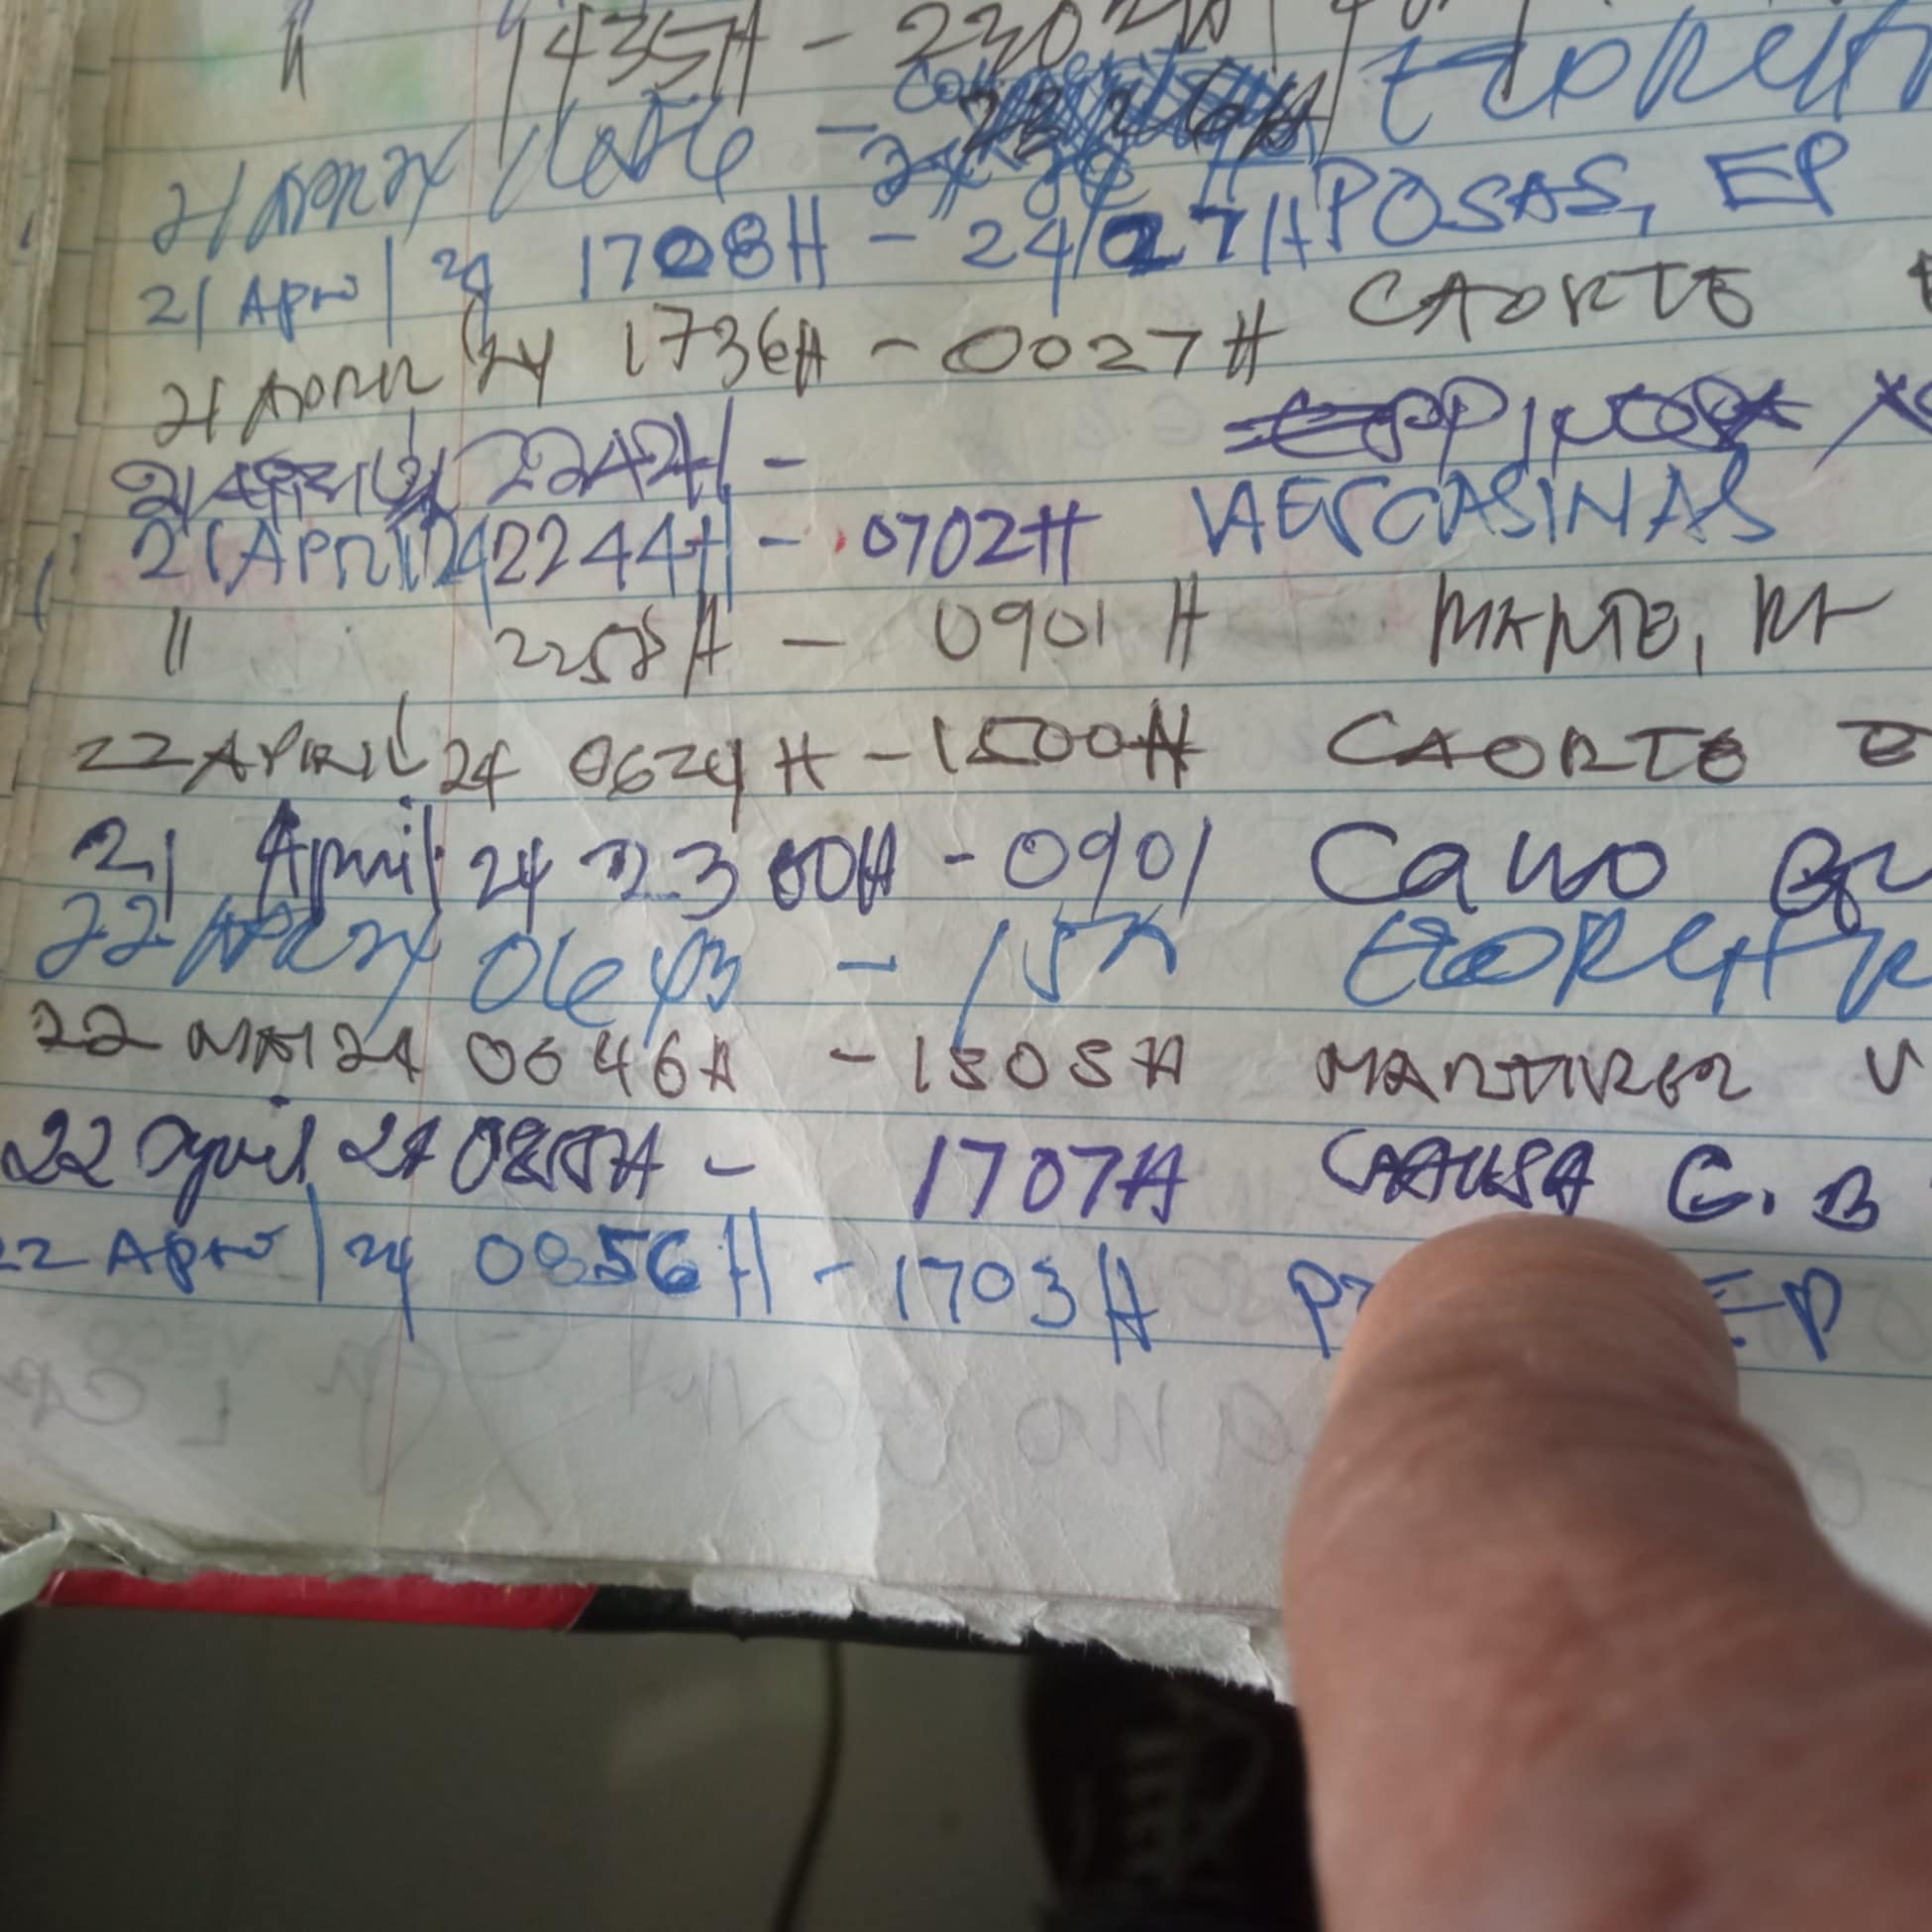 " 1435H - 2302H
21 APR 24 1656 -
21 April 24 1708H - 2427H POSAS, EP
21 APRIL 24 1736H - 0027H CAORTE
21 APRIL 24 2242H - ESPINOSA
21 APRIL 24 2244H - 0702H VAESCASINAS
" 2258H - 0901H MANTE, RA
22 APRIL 24 0624H - 1500H CAORTE E
21 April 24 2300H - 0901 Cano
22 APR 24 0643 - 15
22 MAR 24 0646H - 1505H MARTIREZ V
22 April 24 H - 1707H CAAUSA G. B
22 April 24 0856H - 1703H P EP